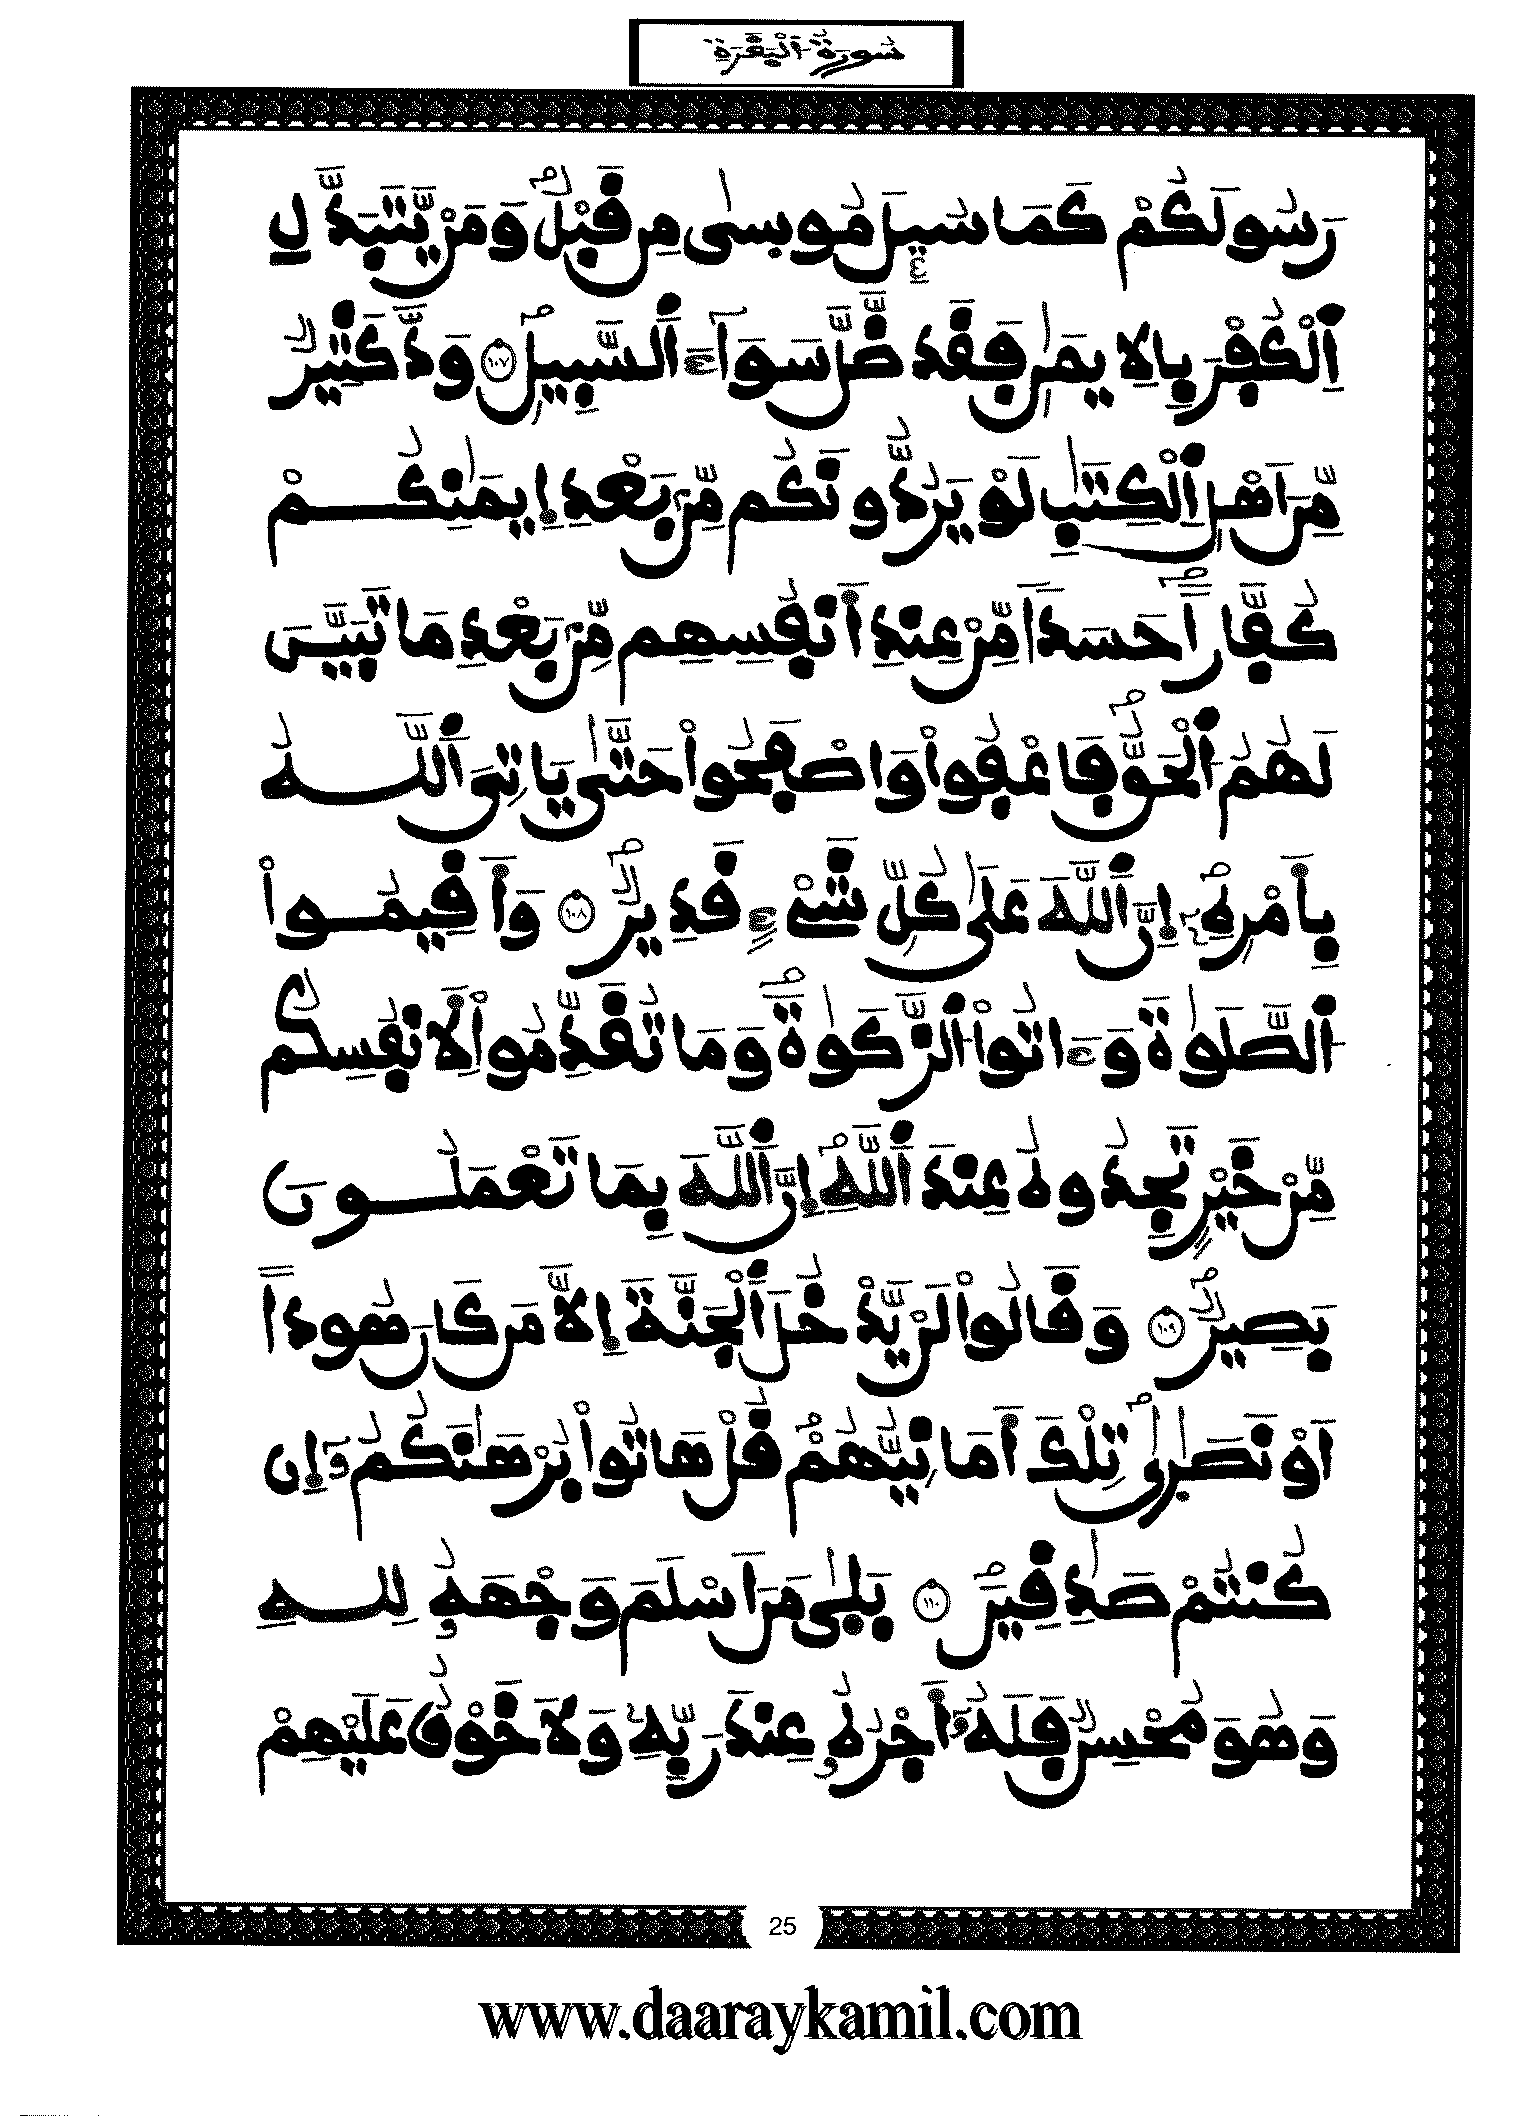 سُورَةُ الْبَقَرَةِ
رَسُولَكُمْ كَمَا سُئِلَ مُوسَىٰ مِن قَبْلُ وَمَنْ يَّتَبَدَّلِ
اِ۬لْكُفْرَ بِالِايمَٰنِ فَقَد ضَّلَّ سَوَآءَ اَ۬لسَّبِيلِ ١٠٧ وَدَّ كَثِيرٌ
مِّنَ اَهْلِ اِ۬لْكِتَٰبِ لَوْ يَرُدُّونَكُم مِّنۢ بَعْدِ إِيمَٰنِكُمْ
كُفَّاراً حَسَداً مِّنْ عِندِ أَنفُسِهِم مِّنۢ بَعْدِ مَا تَبَيَّنَ
لَهُمُ اُ۬لْحَقُّ فَاعْفُواْ وَاصْفَحُواْ حَتَّىٰ يَاتِيَ اَ۬للَّهُ
بِأَمْرِهِۦٓ إِنَّ اَ۬للَّهَ عَلَىٰ كُلِّ شَيْءٍ قَدِيرٌ ١٠٨ وَأَقِيمُواْ
اُ۬لصَّلَوٰةَ وَءَاتُواْ اُ۬لزَّكَوٰةَ وَمَا تُقَدِّمُواْ لِأَنفُسِكُم
مِّنْ خَيْرٍ تَجِدُوهُ عِندَ اَ۬للَّهِ إِنَّ اَ۬للَّهَ بِمَا تَعْمَلُونَ
بَصِيرٌ ١٠٩ وَقَالُواْ لَنْ يَّدْخُلَ اَ۬لْجَنَّةَ إِلَّا مَن كَانَ هُوداً
اَوْ نَصَٰرَىٰ تِلْكَ أَمَانِيُّهُمْ قُلْ هَاتُواْ بُرْهَٰنَكُمُۥٓ إِن
كُنتُمْ صَٰدِقِينَ ١١٠ بَلَىٰ مَنَ اَسْلَمَ وَجْهَهُۥ لِلهِ
وَهُوَ مُحْسِنٌ فَلَهُۥٓ أَجْرُهُۥ عِندَ رَبِّهِۦ وَلَا خَوْفٌ عَلَيْهِمْ
25
www.daaraykamil.com